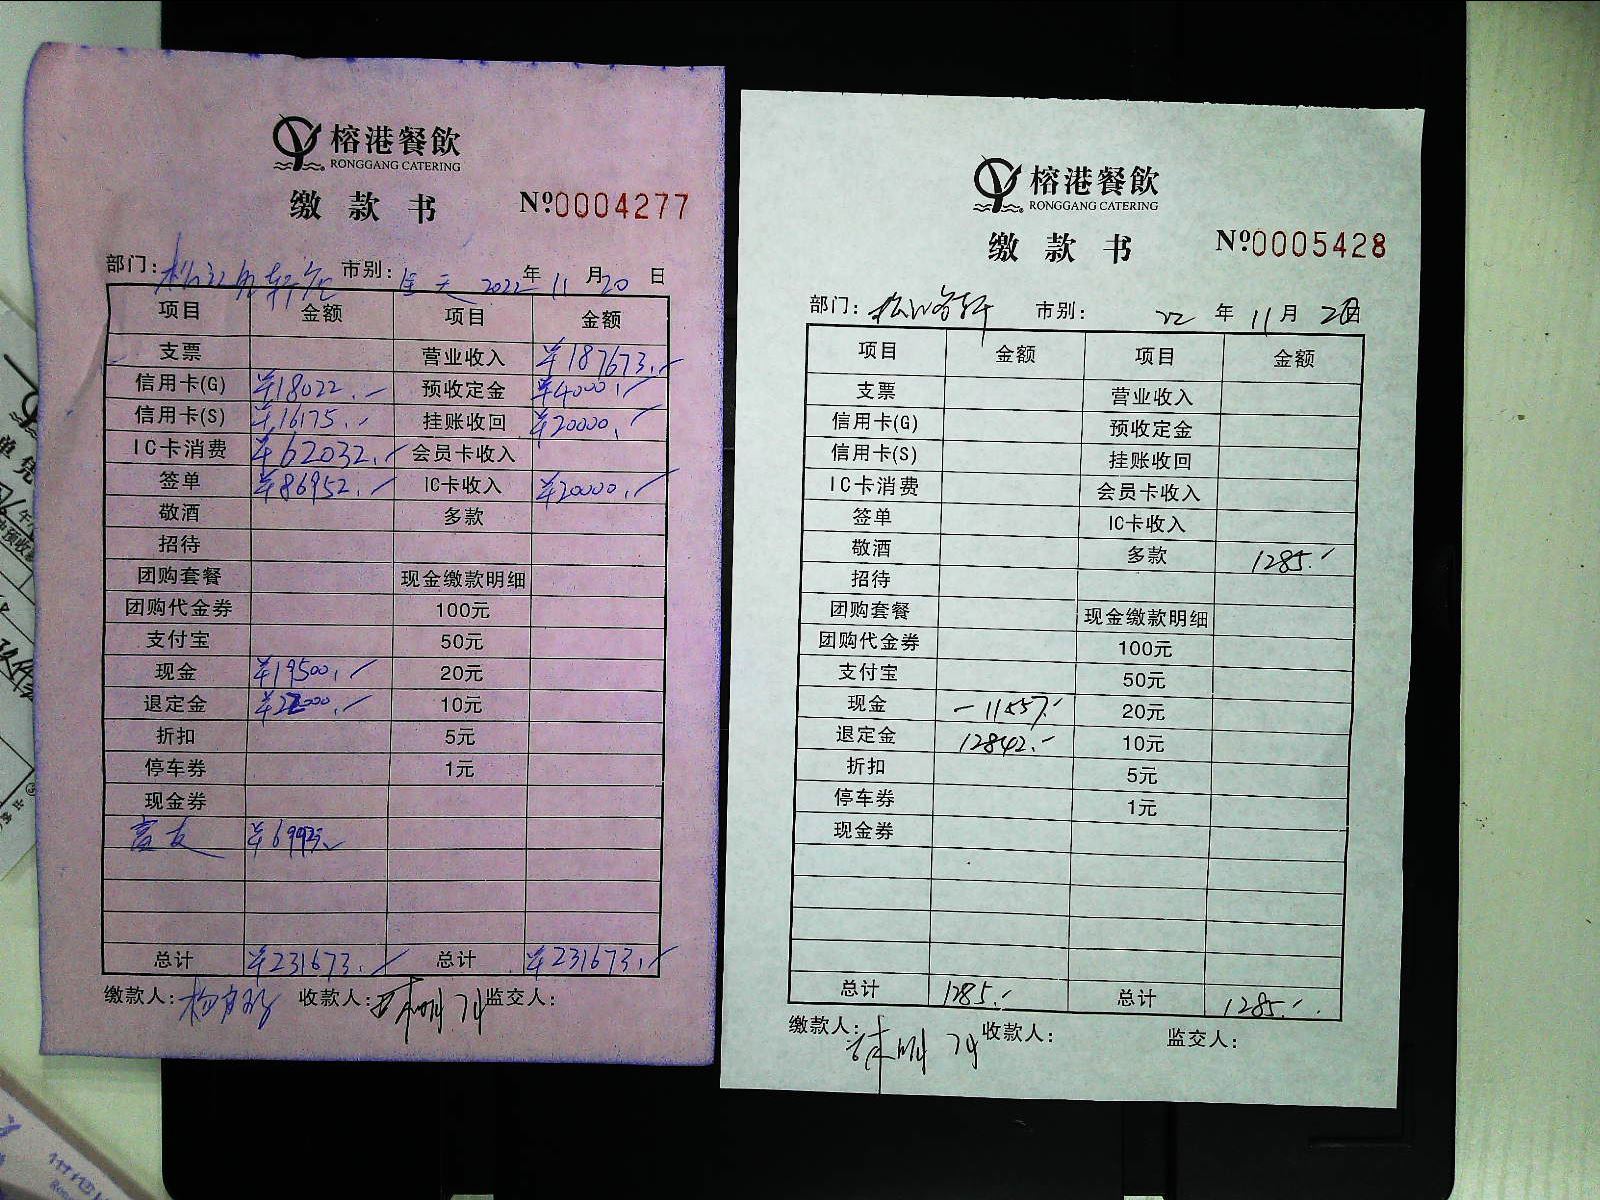 榕港餐飲
RONGGANG CATERING
缴款书
№0004277
部门: 市别: 全天 2022年11月20日
项目 金额 项目 金额
支票 营业收入 ¥187673.-
信用卡(G) ¥18022.- 预收定金 ¥4000.-
信用卡(S) ¥16175.- 挂账收回 ¥20000.-
IC卡消费 ¥62032.- 会员卡收入
签单 ¥86952.- IC卡收入 ¥20000.-
敬酒 多款
招待
团购套餐 现金缴款明细
团购代金券 100元
支付宝 50元
现金 ¥19500.- 20元
退定金 ¥22000.- 10元
折扣 5元
停车券 1元
现金券
富友 ¥6992.-
总计 ¥231673.- 总计 ¥231673.-
缴款人: 收款人: 监交人:
榕港餐飲
RONGGANG CATERING
缴款书
№0005428
部门: 市别: 22年11月 日
项目 金额 项目 金额
支票 营业收入
信用卡(G) 预收定金
信用卡(S) 挂账收回
IC卡消费 会员卡收入
签单 IC卡收入
敬酒 多款 1285.-
招待
团购套餐 现金缴款明细
团购代金券 100元
支付宝 50元
现金 -11557.- 20元
退定金 12842.- 10元
折扣 5元
停车券 1元
现金券
总计 1285.- 总计 1285.-
缴款人: 收款人: 监交人: